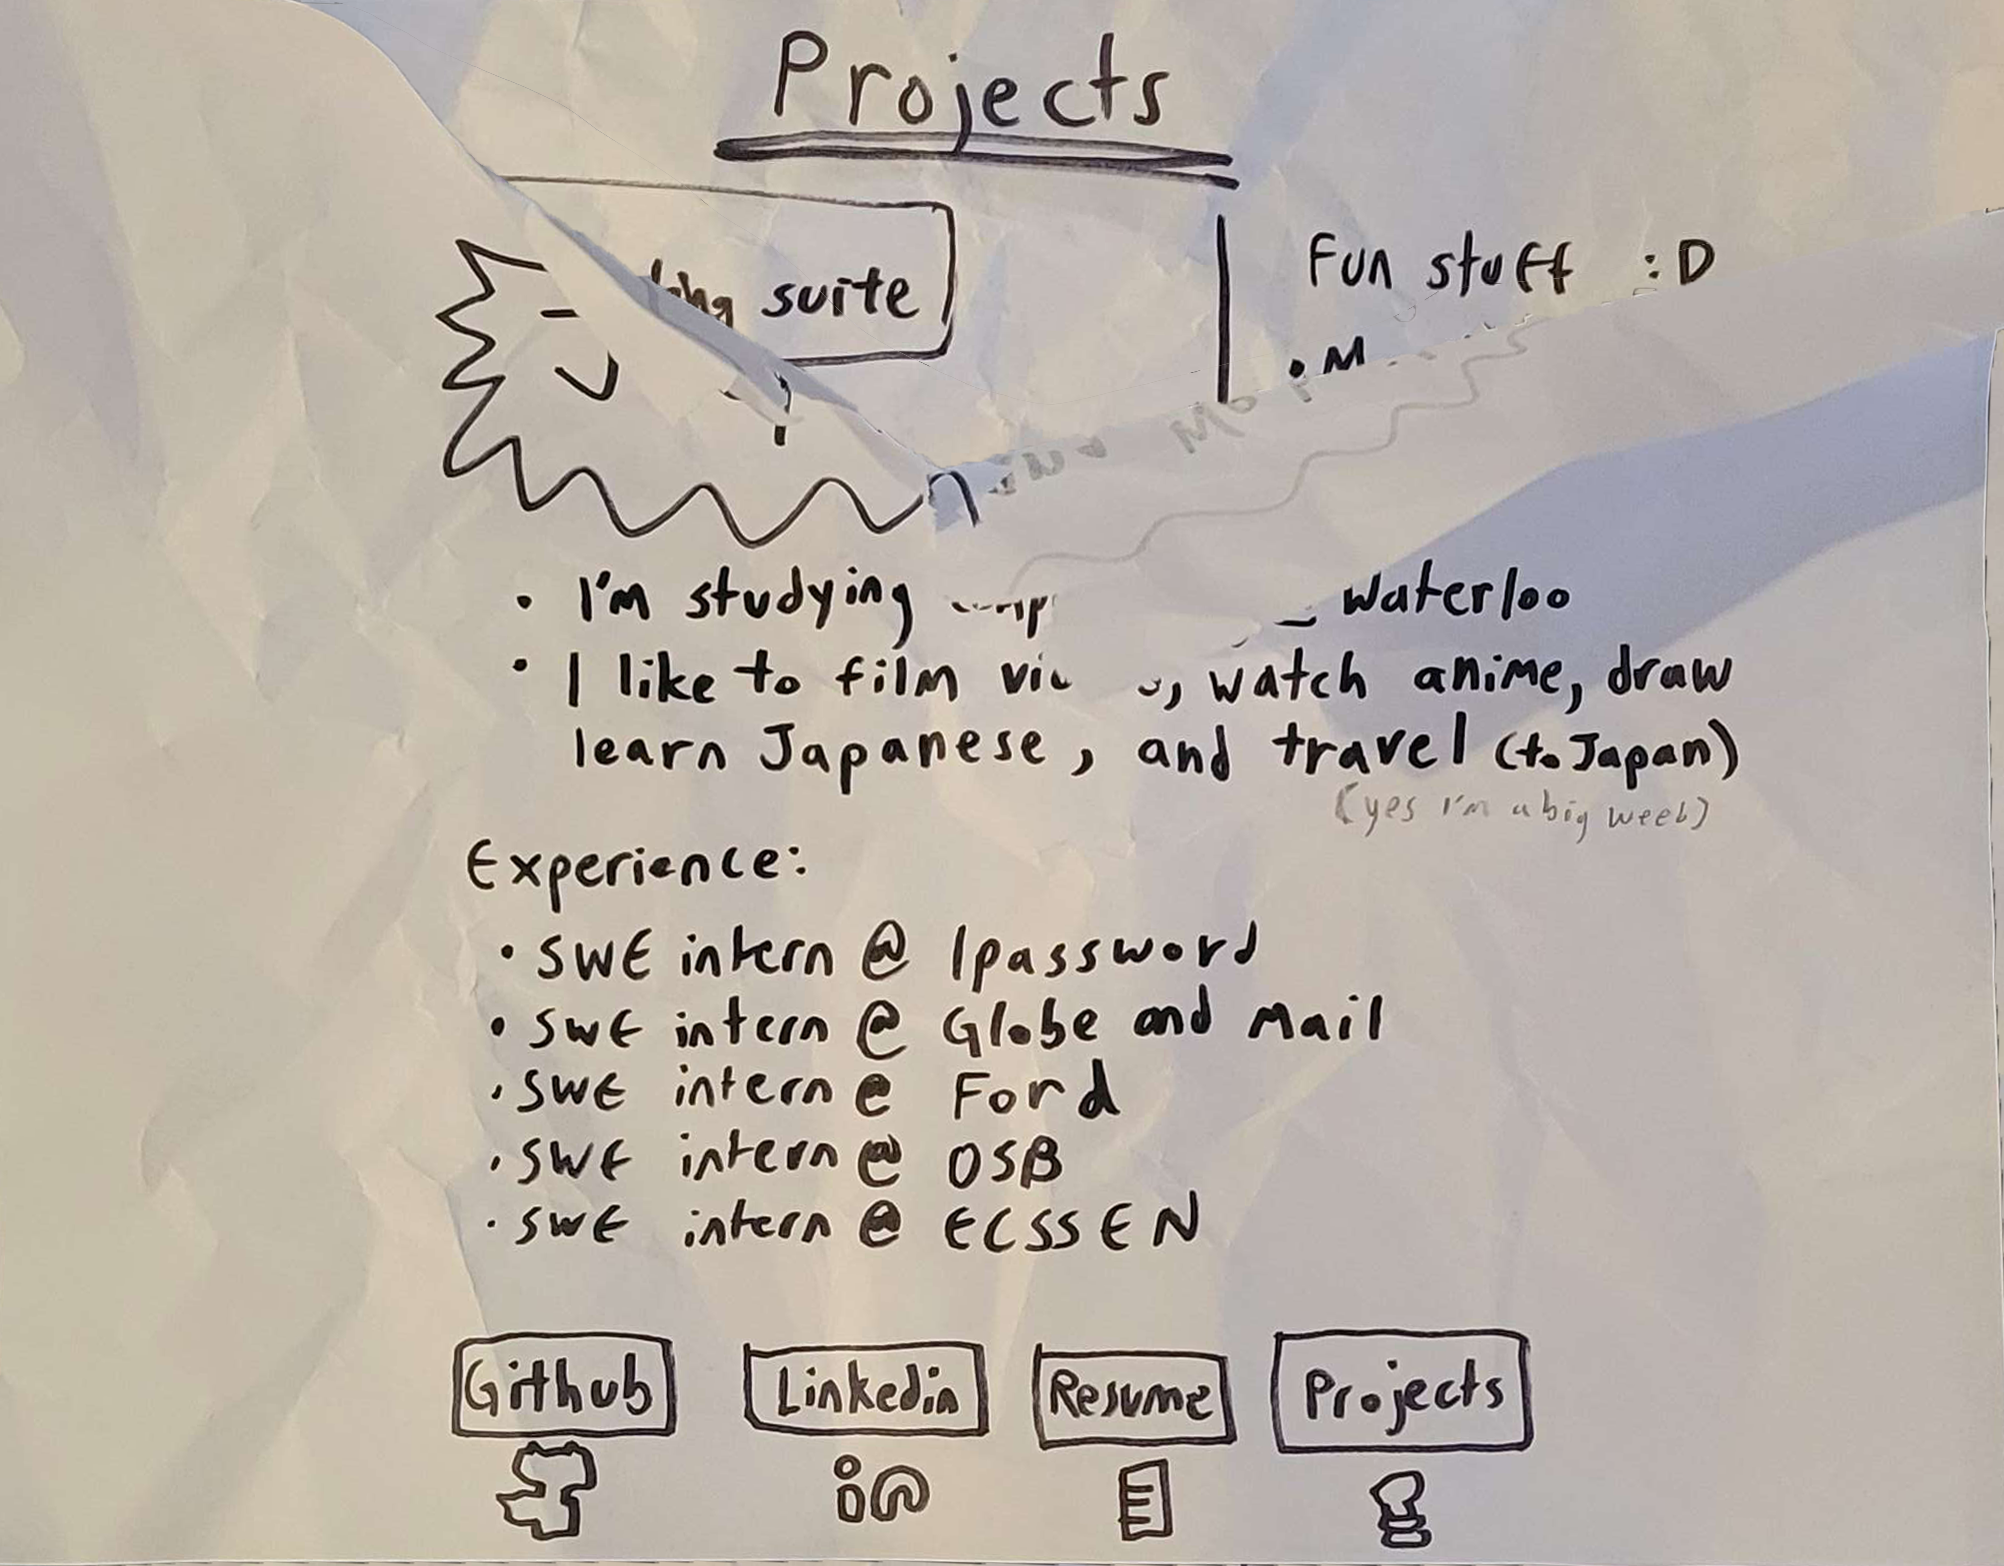 Projects
suite
Fun stuff :D
• I'm studying Waterloo
• I like to film watch anime, draw
learn Japanese, and travel (to Japan)
(yes I'm a big weeb)
Experience:
• SWE intern @ 1password
• SWE intern @ Globe and Mail
• SWE intern @ Ford
• SWE intern @ OSB
• SWE intern @ ECSSEN
Github
Linkedin
Resume
Projects
in